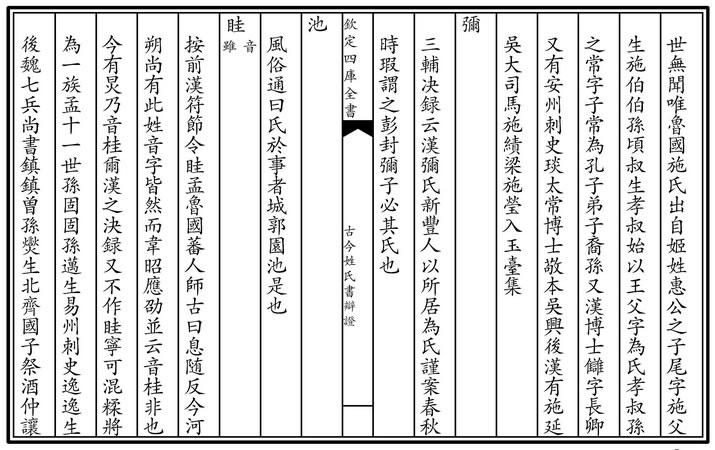 世無聞唯魯國施氏出自姬姓惠公之子尾字施父
生施伯伯孫頃叔生孝叔始以王父字為氏孝叔孫
之常字子常為孔子弟子裔孫又漢博士讎字長卿
又有安州刺史琰太常博士敬本吳興後漢有施延
吳大司馬施績梁施瑩入玉臺集
彌
三輔决録云漢彌氏新豐人以所居為氏謹案春秋
時瑕謂之彭封彌子必其氏也
欽定四庫全書
古今姓氏書辯證
池
風俗通曰氏於事者城郭園池是也
眭
音雖
按前漢符節令眭孟魯國蕃人師古曰息随反今河
朔尚有此姓音字皆然而韋昭應劭並云音桂非也
今有炅乃音桂爾漢之決録又不作眭寧可混糅將
為一族孟十一世孫固固孫邁生易州刺史逸逸生
後魏七兵尚書鎮鎮曽孫爕生北齊國子祭酒仲讓